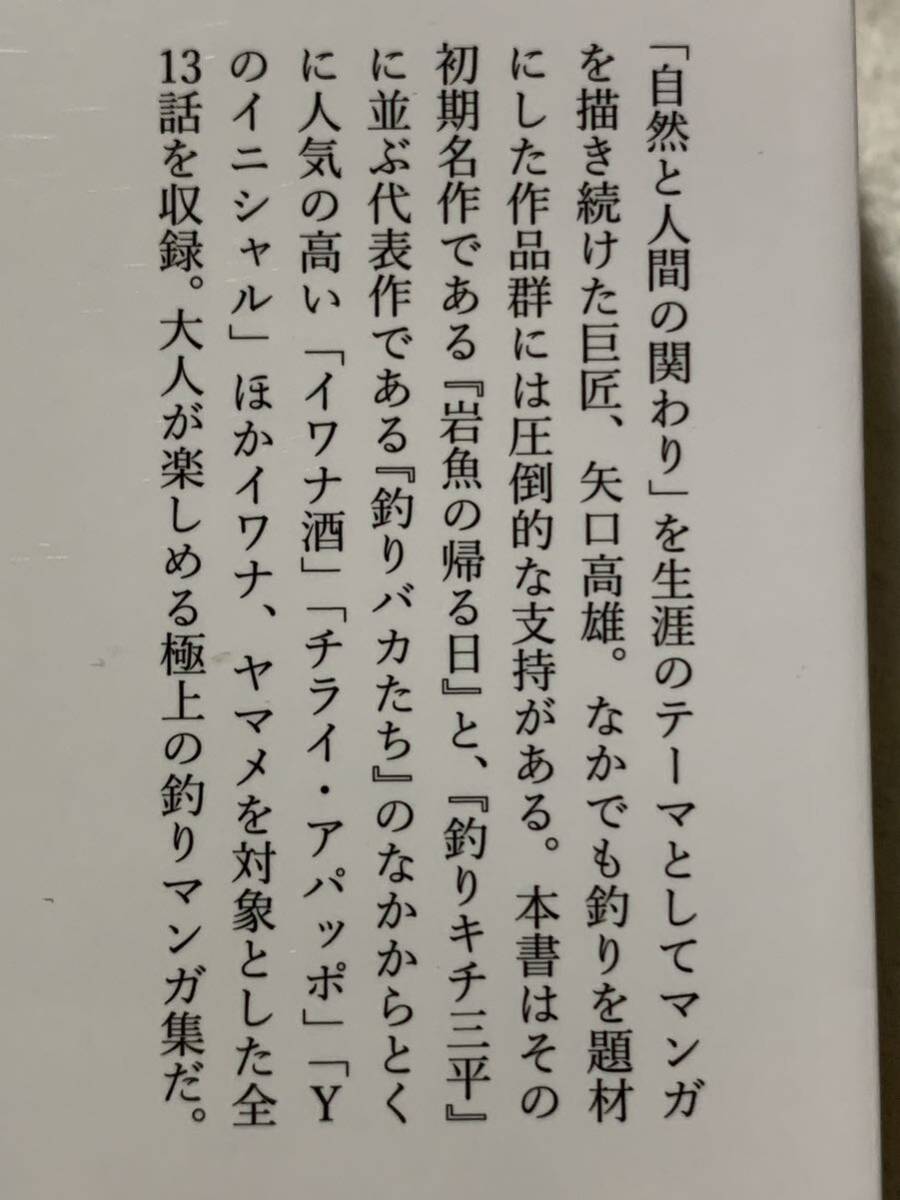 「自然と人間の関わり」を生涯のテーマとしてマンガ
を描き続けた巨匠、矢口高雄。なかでも釣りを題材
にした作品群には圧倒的な支持がある。本書はその
初期名作である『岩魚の帰る日』と、『釣りキチ三平』
に並ぶ代表作である『釣りバカたち』のなかからとく
に人気の高い「イワナ酒」「チライ・アパッポ」「Y
のイニシャル」ほかイワナ、ヤマメを対象とした全
13話を収録。大人が楽しめる極上の釣りマンガ集だ。